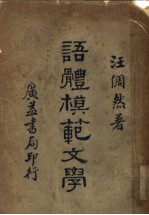 汪倜然著
語體模範文學
廣益書局印行